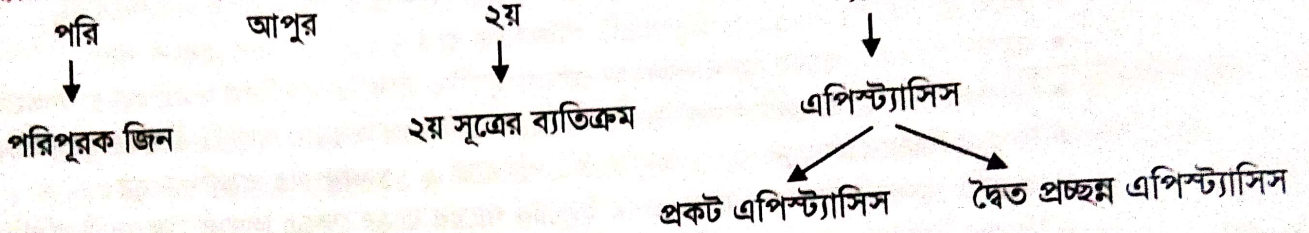 পরি আপুর ২য়
পরিপূরক জিন ২য় সূত্রের ব্যতিক্রম এপিস্ট্যাসিস
প্রকট এপিস্ট্যাসিস দ্বৈত প্রচ্ছন্ন এপিস্ট্যাসিস